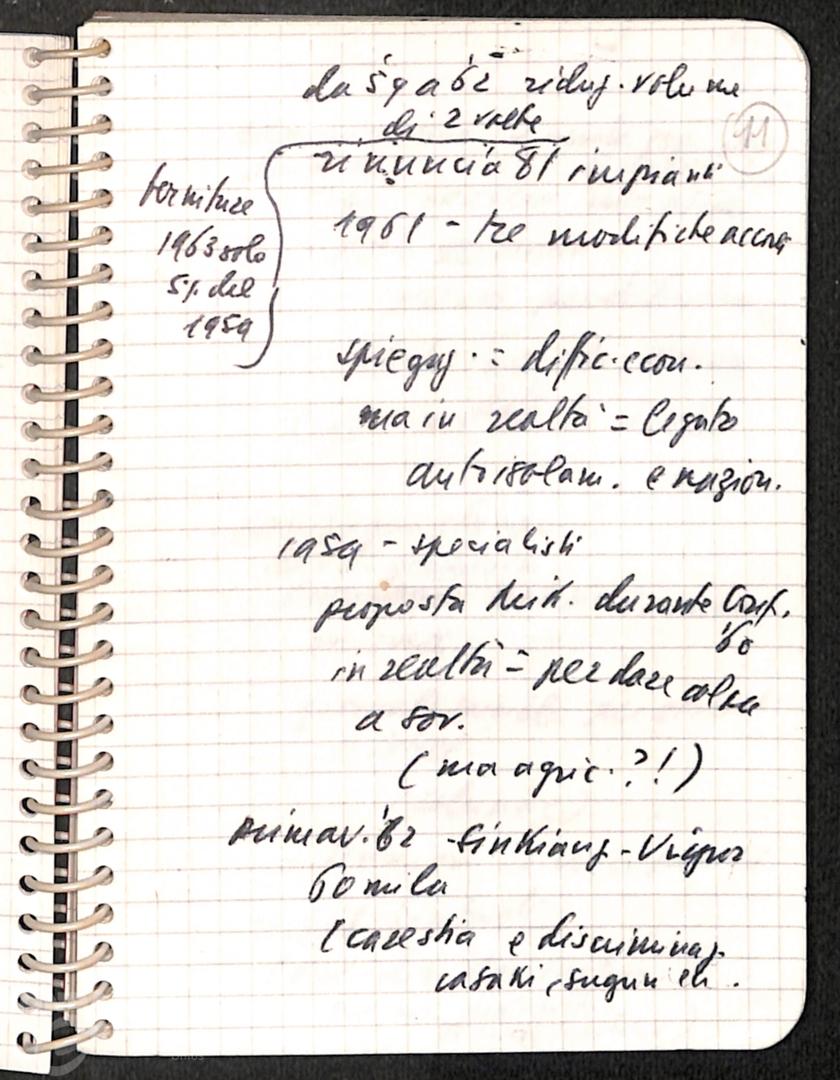 da '59 a '62 riduz. volume
di 2 volte
11
rinuncia 81 impianti
1961 - tre modifiche accor
forniture
1963 solo
5% del
1959
spiegaz. = diffic. econ.
ma in realtà = legato
autoisolam. e nazion.
1959 - specialisti
proposta Mik. durante Conf.
'60
in realtà = per dare colpa
a sov.
(ma agric. ?!)
primav. '62 - Sinkiang - Uigur
60 mila
(carestia e discriminaz.
casaki,